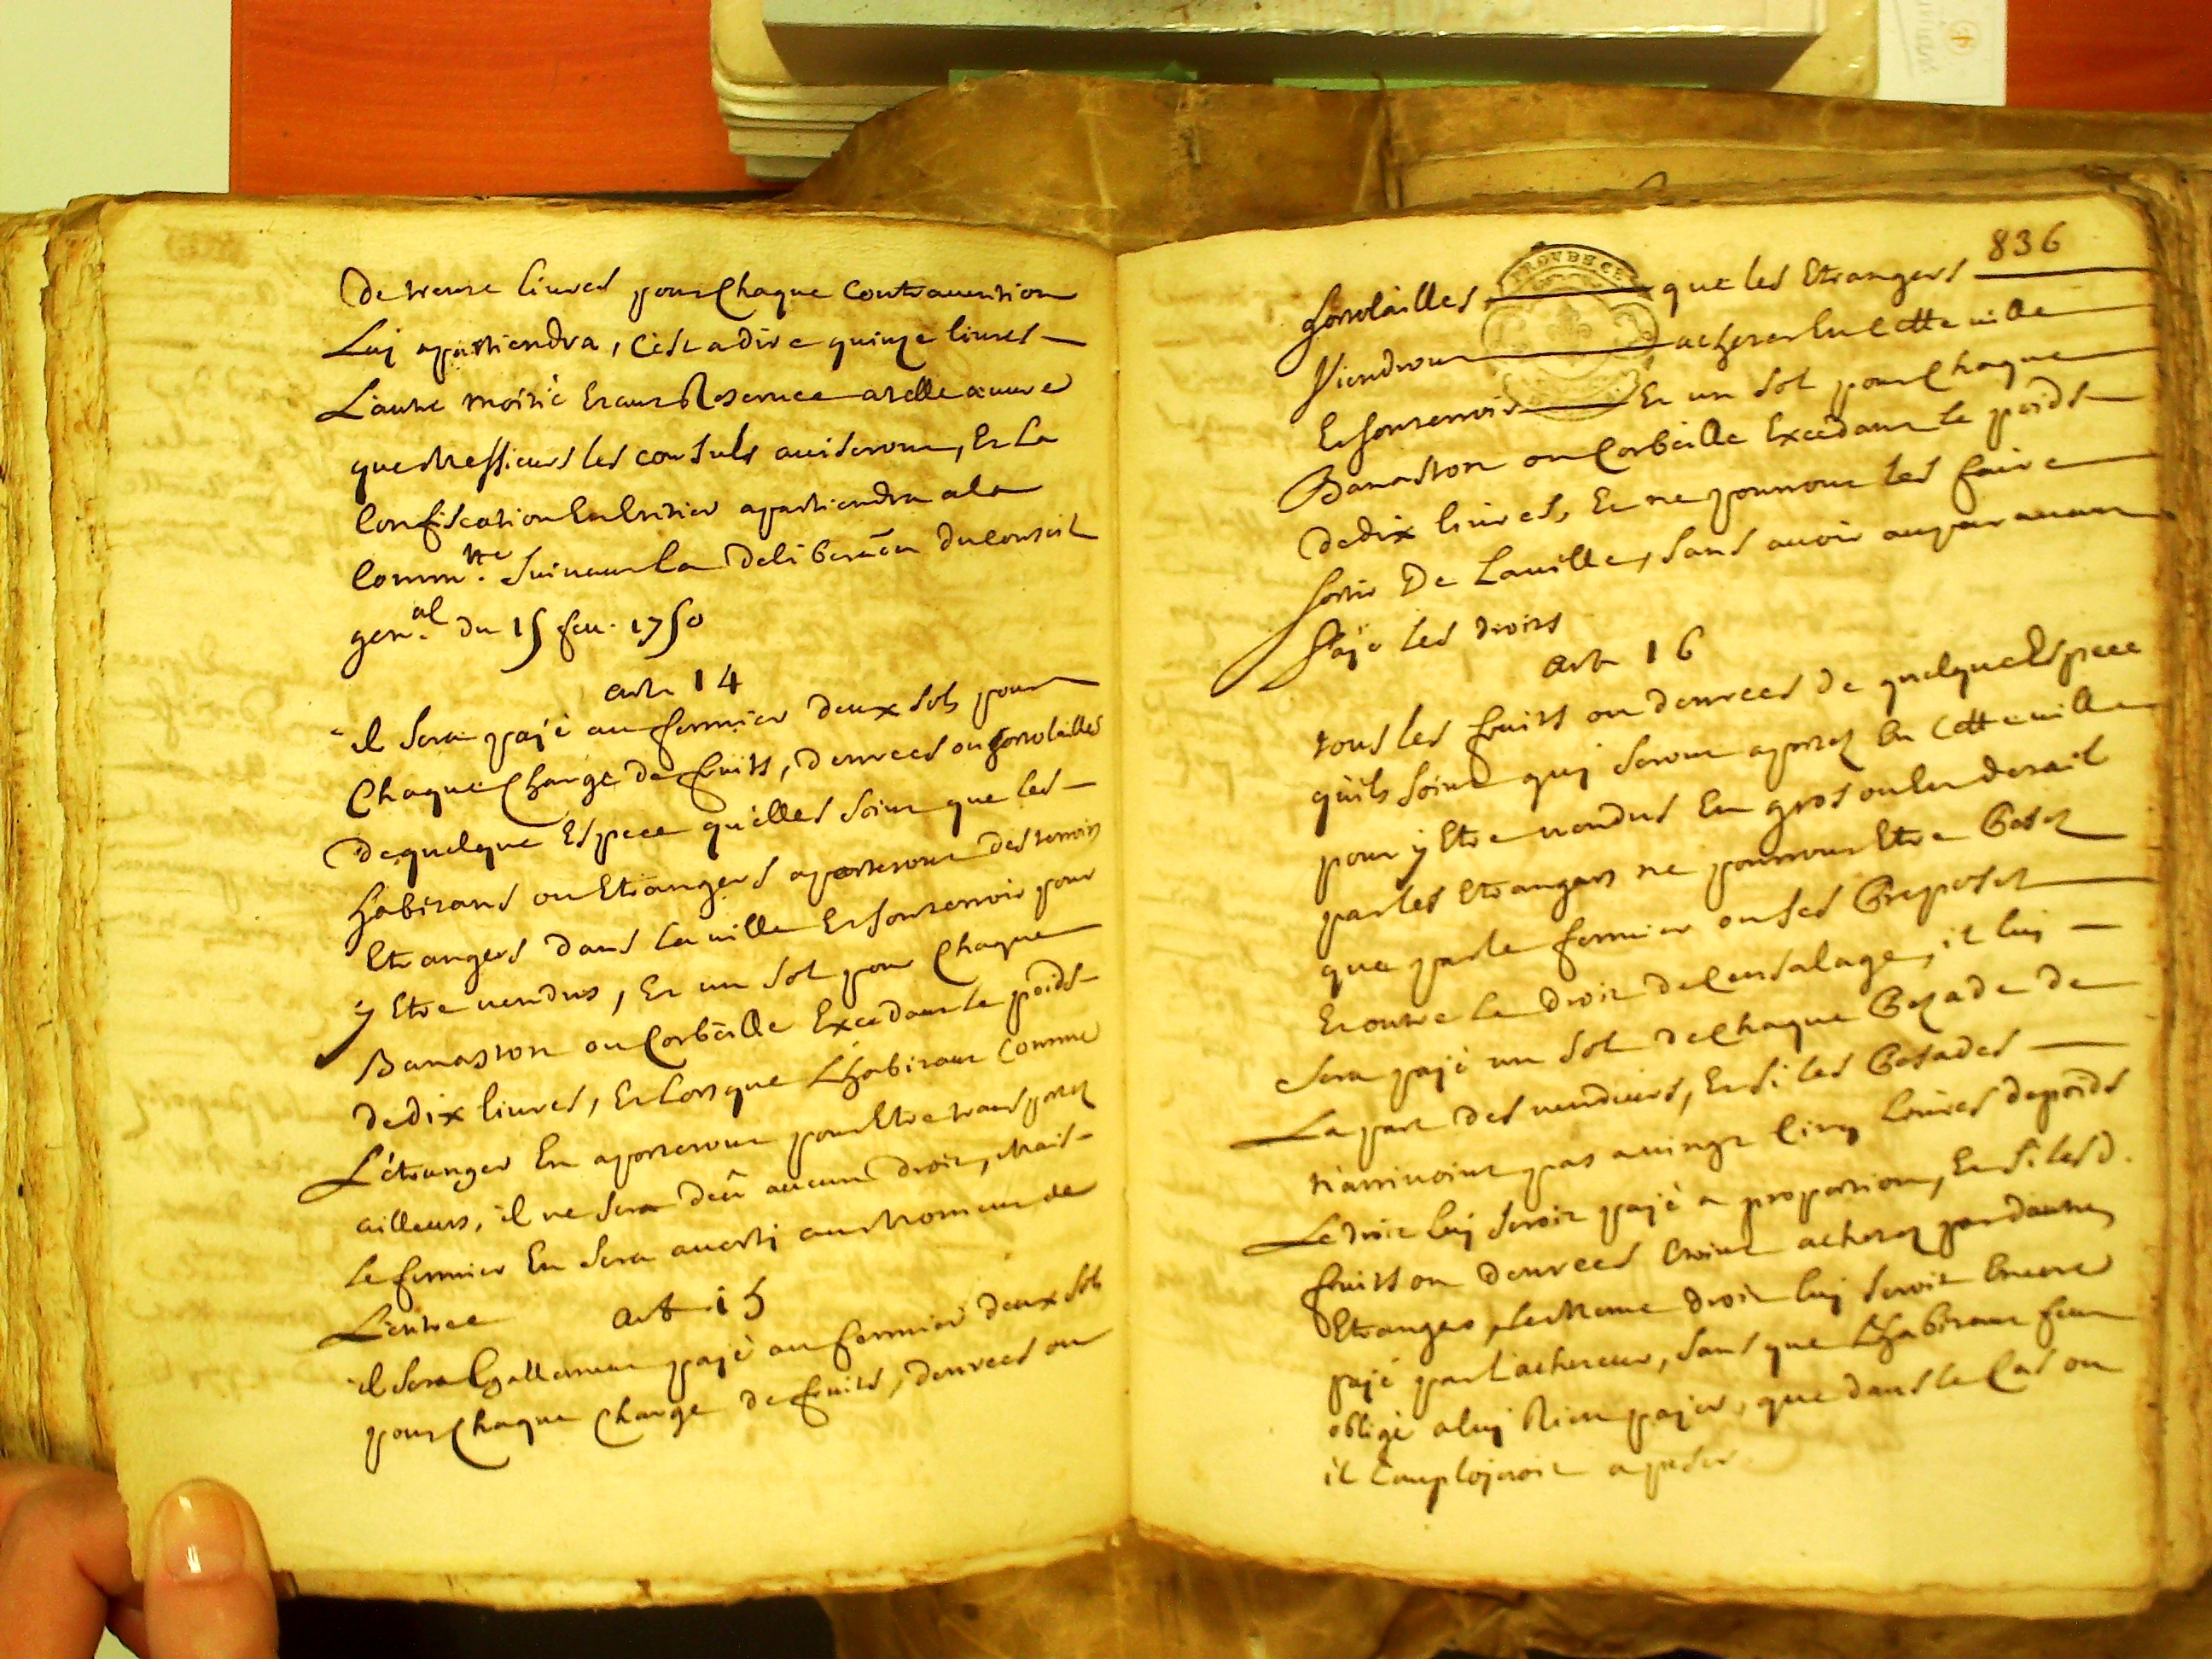 De trente livres pour Chaque Contravention
Luj apartiendra, C'est a dire quinze livres
L'autre moitié Etant Reservée a telle œuvre
que Messieurs les consuls aviseront, Et La
Confiscation En Entier apartiendra a la
Comm.te Suivant La Deliberãon Du Conseil
gen.al du 15 fev. 1750
art. 14
il Sera pajé au fermier deux sols pour
Chaque Charge De fruits, Denrees ou hortolailles
De quelque Espece quelles Soint que les
habitans ou Etrangers aporteront des terroirs
Etrangers Dans La ville Et Son terroir pour
y Etre vendus, Et un Sol pour Chaque
Banaston ou Corbeille Excedant Le poids
De dix livres, Et Lors que L'habitant Comme
L'étranger En aporteront pour Etre transportez
ailleurs, il ne Sera deû aucun droit, Mais
Le fermier En Sera averti au Moment de
L'entree
art. 15
il Sera Egallement pajé au fermier deux sols
pour Chaque Charge de fruits, Denrees ou
836
PROVENCE
hortolailles que les Etrangers
Viendront acheter En Cette ville
Et Son terroir Et un Sol pour Chaque
Banaston ou Corbeille Excédant le poids
De dix livres, Et ne pourront les faire
Sortir De La ville, Sans avoir auparavant
Pajé les droits
art. 16
tous les fruits ou denrees de quelque Espece
qu'ils Soint quj Seront aportez En Cette ville
pour y Etre vendus En gros ou En detail
par les Etrangers ne pourront Etre Pesez
que par le fermier ou Ses Preposez
Et outre Le Droit de Censalage, il luj
Sera pajé un Sol de Chaque Pezade de
La part des vendeurs, Et Si les Pesades
n'arrivoint pas a vingt Cinq Livres de poids
Le droit luj Seroit pajé a proportion, Et Si lesd.
fruits ou Denrees Etoint achetez par d'autres
Etrangers, Le Meme droit luj Seroit Encore
pajé par l'acheteur, Sans que L'habitant feut
obligé a luj Rien pajer, que dans le Cas ou
il l'emplojeroit a peser